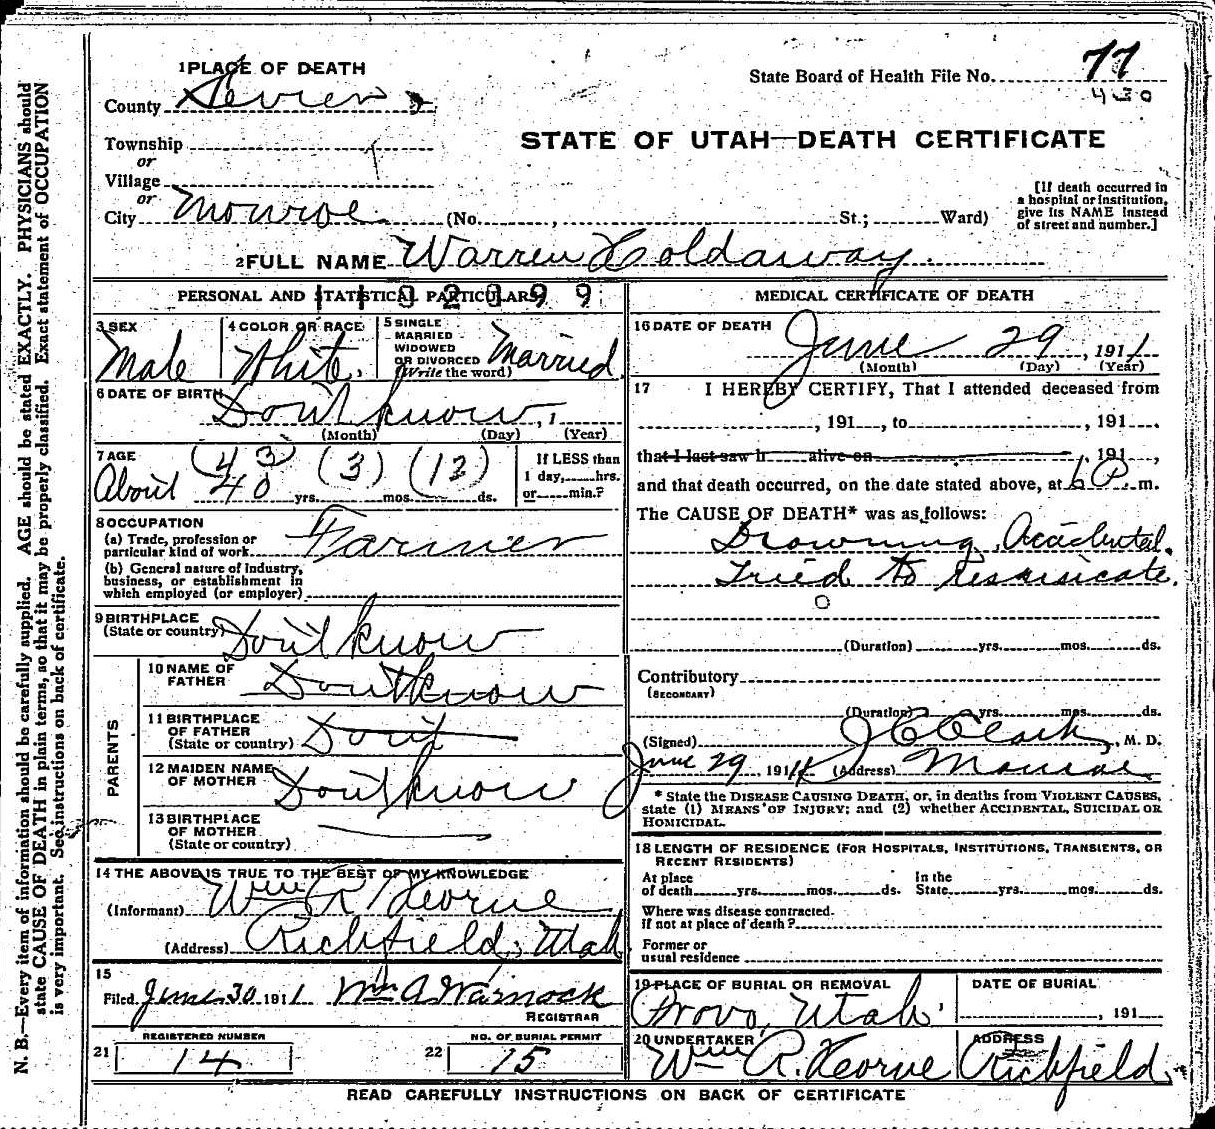 1 PLACE OF DEATH
County Sevier
Township
or
Village
or
City Monroe (No. , St.; Ward)
State Board of Health File No. 77
430
STATE OF UTAH—DEATH CERTIFICATE
[If death occurred in
a hospital or institution,
give its NAME instead
of street and number.]
2 FULL NAME Warren Holdaway
PERSONAL AND STATISTICAL PARTICULARS
3 SEX
Male
4 COLOR OR RACE
White
5 SINGLE
MARRIED
WIDOWED
OR DIVORCED
(Write the word)
Married
6 DATE OF BIRTH
Don't know , 1
(Month) (Day) (Year)
7 AGE
(43) (3) (13)
About 40 yrs. mos. ds.
If LESS than
1 day, hrs.
or min.?
8 OCCUPATION
(a) Trade, profession or
particular kind of work Farmer
(b) General nature of industry,
business, or establishment in
which employed (or employer)
9 BIRTHPLACE
(State or country) Don't know
PARENTS
10 NAME OF
FATHER Don't know
11 BIRTHPLACE
OF FATHER
(State or country) Don't
12 MAIDEN NAME
OF MOTHER Don't know
13 BIRTHPLACE
OF MOTHER
(State or country)
14 THE ABOVE IS TRUE TO THE BEST OF MY KNOWLEDGE
(Informant) Wm R
(Address) Richfield, Utah
15
Filed June 30 1911 Wm A Warnock
REGISTRAR
REGISTERED NUMBER
21 14
NO. OF BURIAL PERMIT
22 15
MEDICAL CERTIFICATE OF DEATH
16 DATE OF DEATH
June 29 , 1911
(Month) (Day) (Year)
17 I HEREBY CERTIFY, That I attended deceased from
, 191 , to , 191
that I last saw h alive on , 191 ,
and that death occurred, on the date stated above, at 6 P. m.
The CAUSE OF DEATH* was as follows:
Drowning, Accidental.
Tried to
(Duration) yrs. mos. ds.
Contributory
(SECONDARY)
(Duration) yrs. mos. ds.
(Signed) J C Clark , M. D.
June 29 , 1911 (Address) Monroe
* State the DISEASE CAUSING DEATH, or, in deaths from VIOLENT CAUSES,
state (1) MEANS OF INJURY; and (2) whether ACCIDENTAL, SUICIDAL OR
HOMICIDAL.
18 LENGTH OF RESIDENCE (FOR HOSPITALS, INSTITUTIONS, TRANSIENTS, OR
RECENT RESIDENTS)
At place
of death yrs. mos. ds.
In the
State yrs. mos. ds.
Where was disease contracted.
if not at place of death?
Former or
usual residence
19 PLACE OF BURIAL OR REMOVAL
Provo, Utah
DATE OF BURIAL
, 191
20 UNDERTAKER
Wm R.
ADDRESS
Richfield
READ CAREFULLY INSTRUCTIONS ON BACK OF CERTIFICATE
N. B.—Every item of information should be carefully supplied. AGE should be stated EXACTLY. PHYSICIANS should
state CAUSE OF DEATH in plain terms, so that it may be properly classified. Exact statement of OCCUPATION
is very important. See instructions on back of certificate.